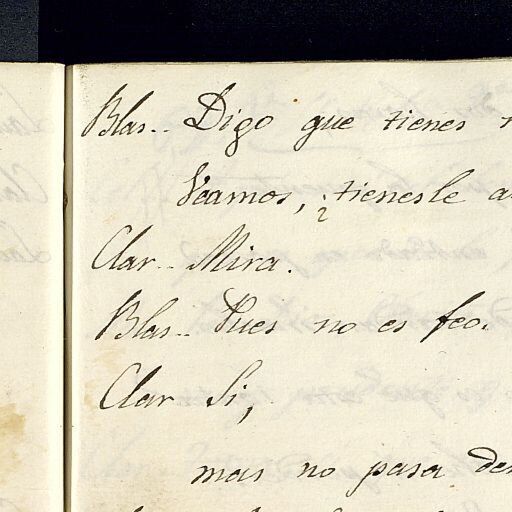 Blas.. Digo que tienes
Veamos, ¿tienesle
Clar.. Mira.
Blas.. Pues no es feo.
Clar Si,
mas no pasa